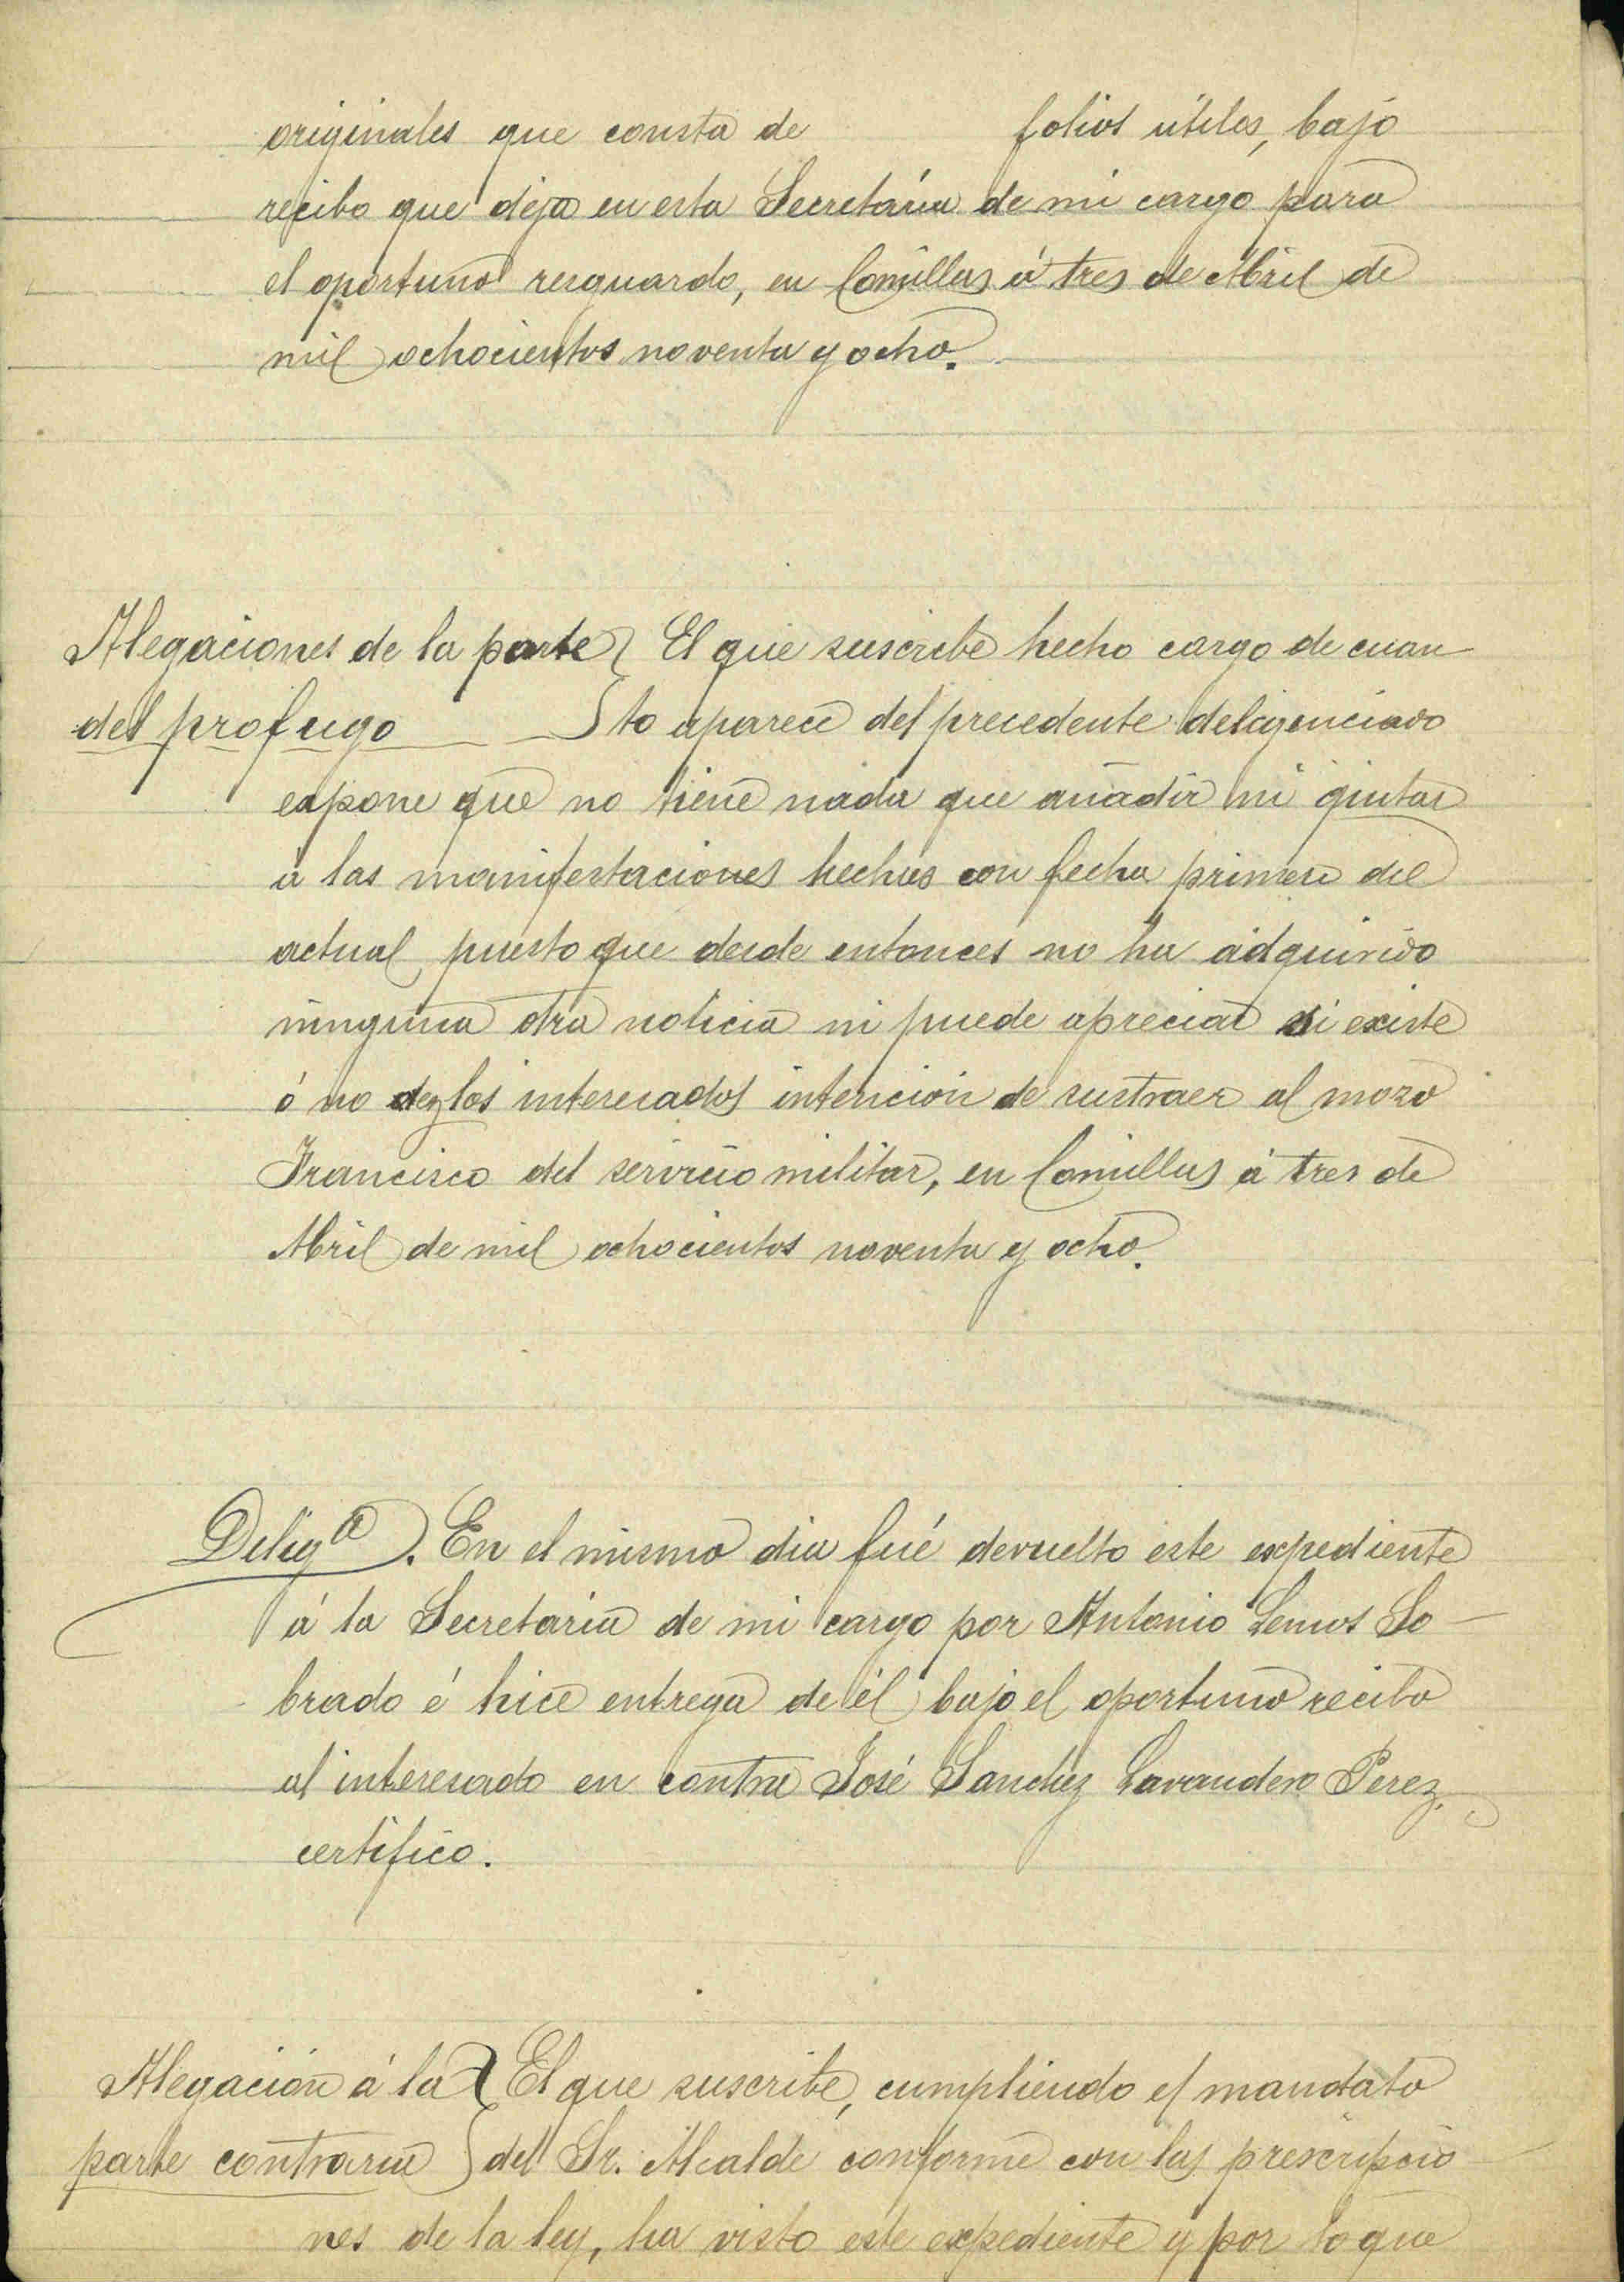 originales que consta de folios útiles, bajo
recibo que deja en esta Secretaría de mi cargo para
el oportuno resguardo, en Comillas á tres de Abril de
mil ochocientos noventa y ocho.
Alegaciones de la parte } El que suscribe hecho cargo de cuan
del profugo } to aparece del precedente deligenciado
expone que no tiene nada que añadir ni quitar
á las manifestaciones hechas con fecha primero del
actual puesto que desde entonces no ha adquirido
ninguna otra noticia ni puede apreciar si existe
ó no de los interesados intención de sustraer al mozo
Francisco del servicio militar, en Comillas á tres de
Abril de mil ochocientos noventa y ocho.
Deligª. En el mismo dia fué devuelto este expediente
á la Secretaria de mi cargo por Antonio Lemus So-
brado é hice entrega de él bajo el oportuno recibo
al interesado en contra José Sanchez Lavandero Perez,
certifico.
Alegación á la } El que suscribe, cumpliendo el mandato
parte contraria } del Sr. Alcalde conforme con las prescripcio-
nes de la ley, ha visto este expediente y por lo que